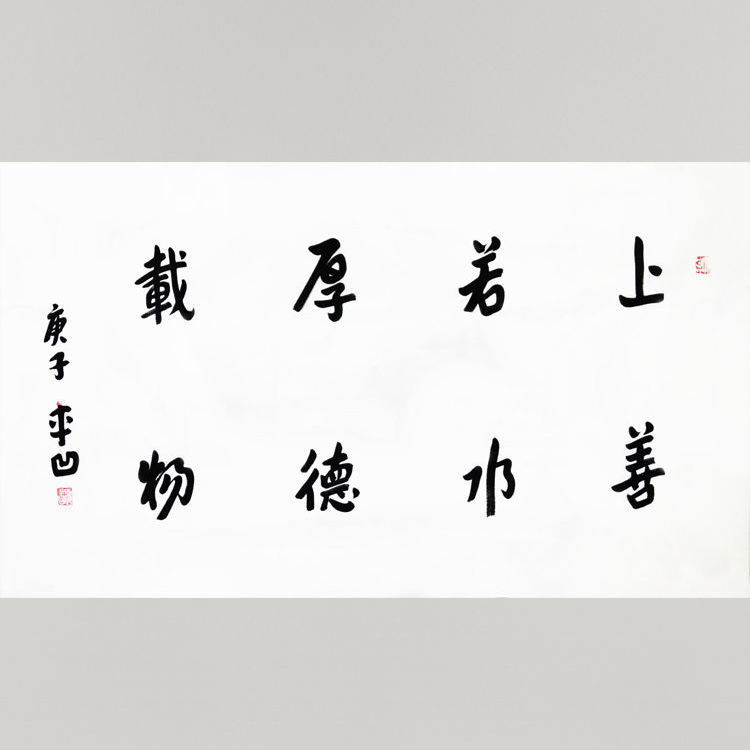 上善
若水
厚德
載物
庚子 平凹